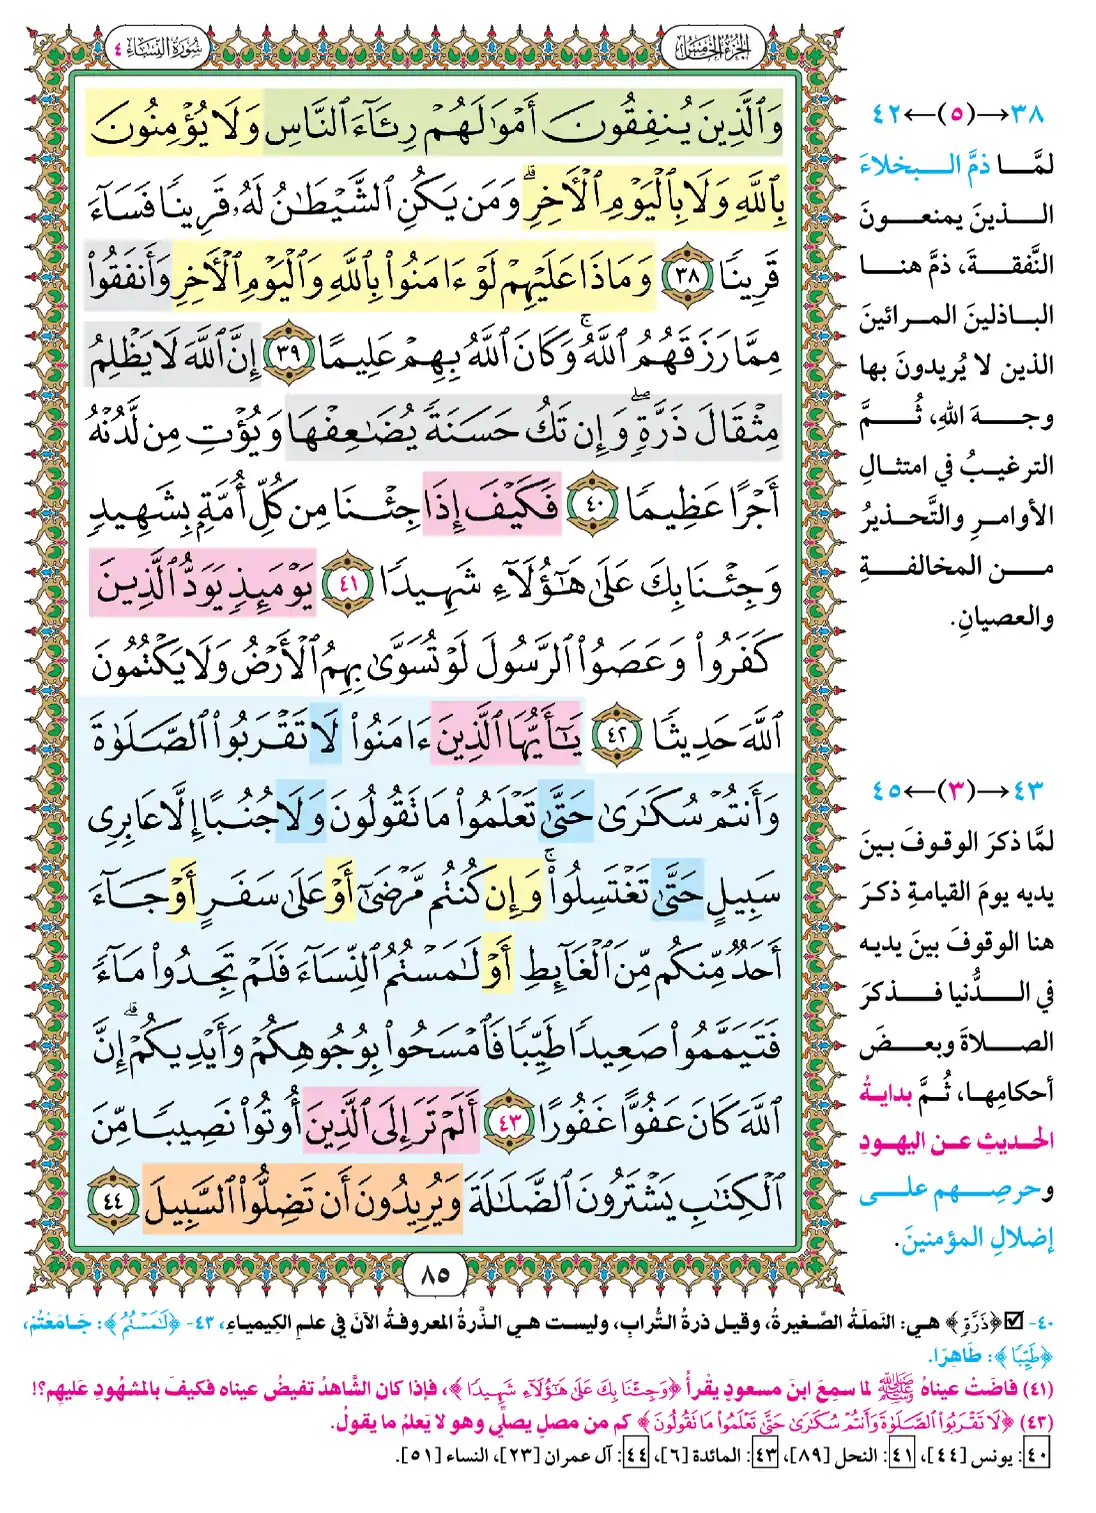 الجزء الخامس
سورة النساء ٤
وَٱلَّذِينَ يُنفِقُونَ أَمْوَٰلَهُمْ رِئَآءَ ٱلنَّاسِ وَلَا يُؤْمِنُونَ
بِٱللَّهِ وَلَا بِٱلْيَوْمِ ٱلْأَخِرِ ۗ وَمَن يَكُنِ ٱلشَّيْطَٰنُ لَهُۥ قَرِينًا فَسَآءَ
قَرِينًا ٣٨ وَمَاذَا عَلَيْهِمْ لَوْ ءَامَنُوا۟ بِٱللَّهِ وَٱلْيَوْمِ ٱلْأَخِرِ وَأَنفَقُوا۟
مِمَّا رَزَقَهُمُ ٱللَّهُ ۚ وَكَانَ ٱللَّهُ بِهِمْ عَلِيمًا ٣٩ إِنَّ ٱللَّهَ لَا يَظْلِمُ
مِثْقَالَ ذَرَّةٍ ۖ وَإِن تَكُ حَسَنَةً يُضَٰعِفْهَا وَيُؤْتِ مِن لَّدُنْهُ
أَجْرًا عَظِيمًا ٤٠ فَكَيْفَ إِذَا جِئْنَا مِن كُلِّ أُمَّةٍۭ بِشَهِيدٍ
وَجِئْنَا بِكَ عَلَىٰ هَٰٓؤُلَآءِ شَهِيدًا ٤١ يَوْمَئِذٍ يَوَدُّ ٱلَّذِينَ
كَفَرُوا۟ وَعَصَوُا۟ ٱلرَّسُولَ لَوْ تُسَوَّىٰ بِهِمُ ٱلْأَرْضُ وَلَا يَكْتُمُونَ
ٱللَّهَ حَدِيثًا ٤٢ يَٰٓأَيُّهَا ٱلَّذِينَ ءَامَنُوا۟ لَا تَقْرَبُوا۟ ٱلصَّلَوٰةَ
وَأَنتُمْ سُكَٰرَىٰ حَتَّىٰ تَعْلَمُوا۟ مَا تَقُولُونَ وَلَا جُنُبًا إِلَّا عَابِرِى
سَبِيلٍ حَتَّىٰ تَغْتَسِلُوا۟ ۚ وَإِن كُنتُم مَّرْضَىٰٓ أَوْ عَلَىٰ سَفَرٍ أَوْ جَآءَ
أَحَدٌ مِّنكُم مِّنَ ٱلْغَآئِطِ أَوْ لَٰمَسْتُمُ ٱلنِّسَآءَ فَلَمْ تَجِدُوا۟ مَآءً
فَتَيَمَّمُوا۟ صَعِيدًا طَيِّبًا فَٱمْسَحُوا۟ بِوُجُوهِكُمْ وَأَيْدِيكُمْ ۗ إِنَّ
ٱللَّهَ كَانَ عَفُوًّا غَفُورًا ٤٣ أَلَمْ تَرَ إِلَى ٱلَّذِينَ أُوتُوا۟ نَصِيبًا مِّنَ
ٱلْكِتَٰبِ يَشْتَرُونَ ٱلضَّلَٰلَةَ وَيُرِيدُونَ أَن تَضِلُّوا۟ ٱلسَّبِيلَ ٤٤
٨٥
٣٨→(٥)←٤٢
لمَّا ذمَّ البخلاءَ
الذينَ يمنعونَ
النَّفقةَ، ذمَّ هنا
الباذلينَ المرائينَ
الذين لا يُريدونَ بها
وجهَ اللهِ، ثُمَّ
الترغيبُ في امتثالِ
الأوامرِ والتَّحذيرُ
من المخالفةِ
والعصيانِ.
٤٣→(٣)←٤٥
لمَّا ذكرَ الوقوفَ بينَ
يديه يومَ القيامةِ ذكرَ
هنا الوقوفَ بينَ يديه
في الدُّنيا فذكرَ
الصلاةَ وبعضَ
أحكامِها، ثُمَّ بدايةُ
الحديثِ عن اليهودِ
وحرصِهم على
إضلالِ المؤمنينَ.
٤٠- ☑ ﴿ذَرَّةٍ﴾ هي: النَّملَةُ الصَّغيرةُ، وقيل ذرةُ التُّرابِ، وليست هي الذَّرةُ المعروفةُ الآنَ في علمِ الكِيمياءِ، ٤٣- ﴿لَٰمَسْتُمُ﴾: جَامَعْتُمْ،
﴿طَيِّبًا﴾: طَاهِرًا.
(٤١) فاضَتْ عيناهُ ﷺ لما سمِعَ ابنَ مسعودٍ يقْرأُ ﴿وَجِئْنَا بِكَ عَلَىٰ هَٰٓؤُلَآءِ شَهِيدًا﴾، فإذا كان الشَّاهدُ تفيضُ عيناه فكيفَ بالمشهُودِ عَليهِم؟!
(٤٣) ﴿لَا تَقْرَبُوا۟ ٱلصَّلَوٰةَ وَأَنتُمْ سُكَٰرَىٰ حَتَّىٰ تَعْلَمُوا۟ مَا تَقُولُونَ﴾ كم من مصلٍ يصلِّي وهو لا يَعلمُ ما يقولُ.
٤٠: يونس [٤٤]، ٤١: النحل [٨٩]، ٤٣: المائدة [٦]، ٤٤: آل عمران [٢٣]، النساء [٥١].